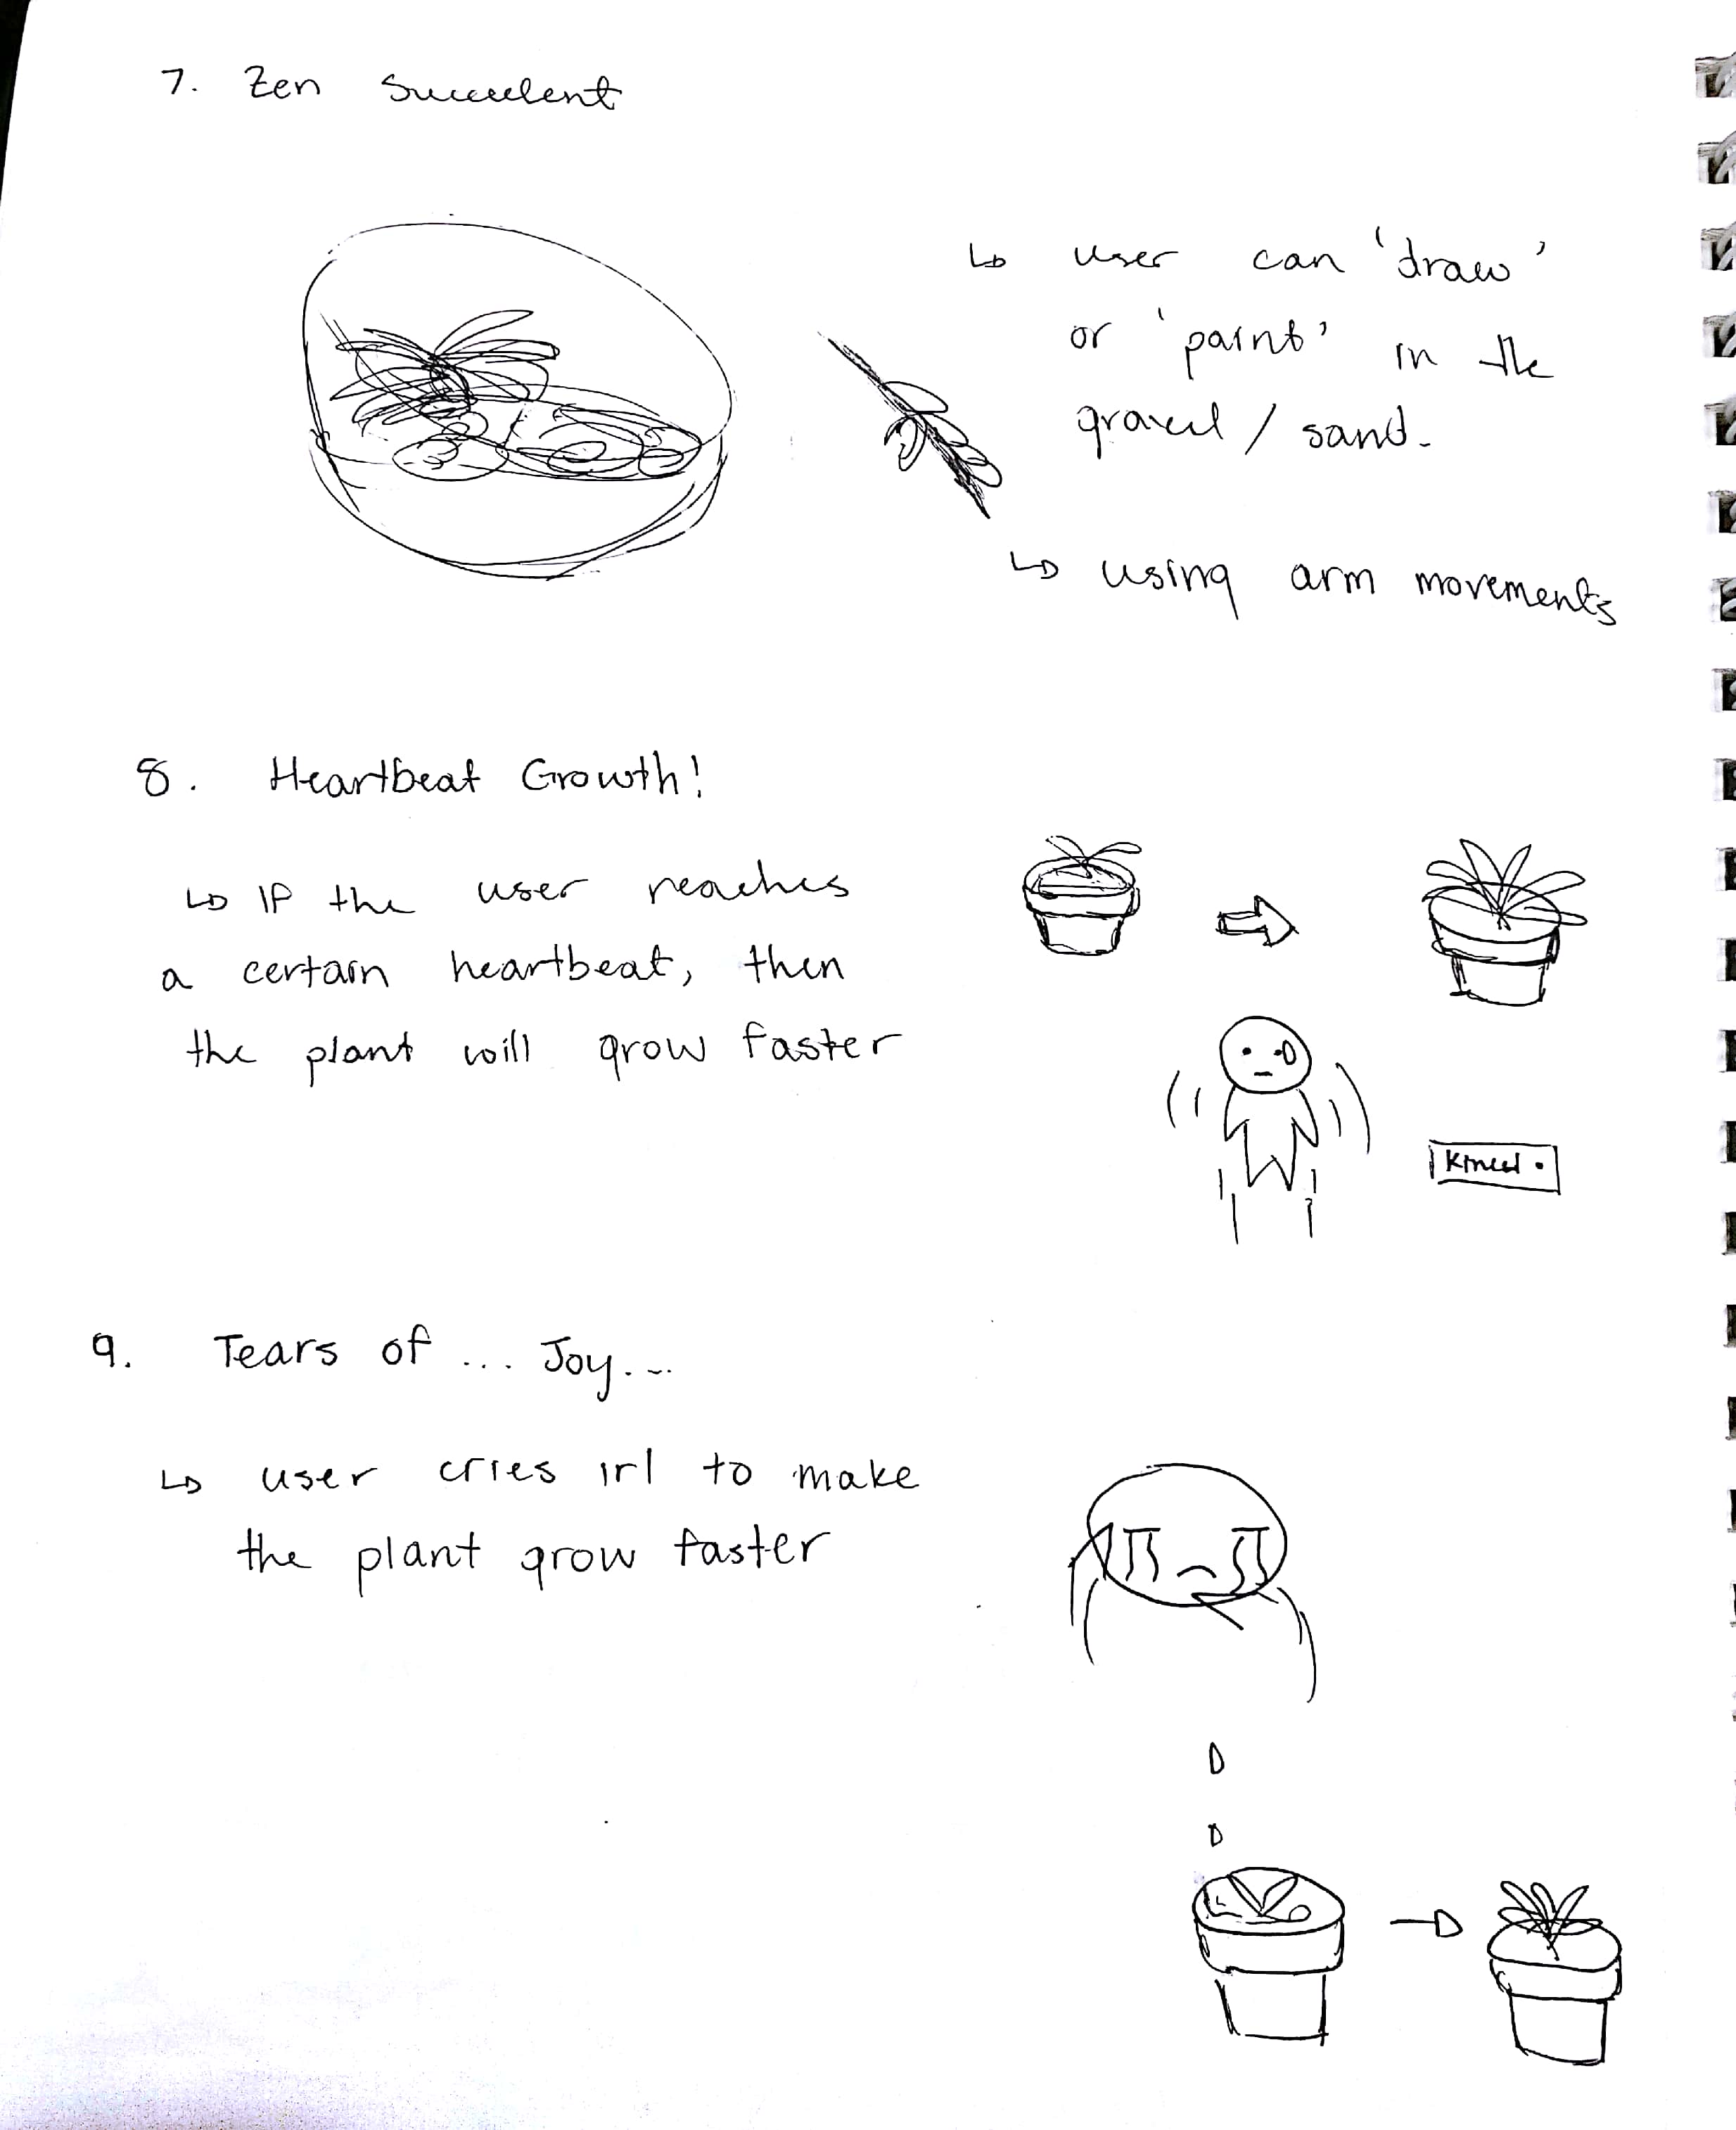 7. Zen Succulent
↳ user can 'draw'
or 'paint' in the
gravel / sand.
↳ using arm movements
8. Heartbeat Growth!
↳ If the user reaches
a certain heartbeat, then
the plant will grow faster
Kinect
9. Tears of ... Joy...
↳ user cries irl to make
the plant grow faster